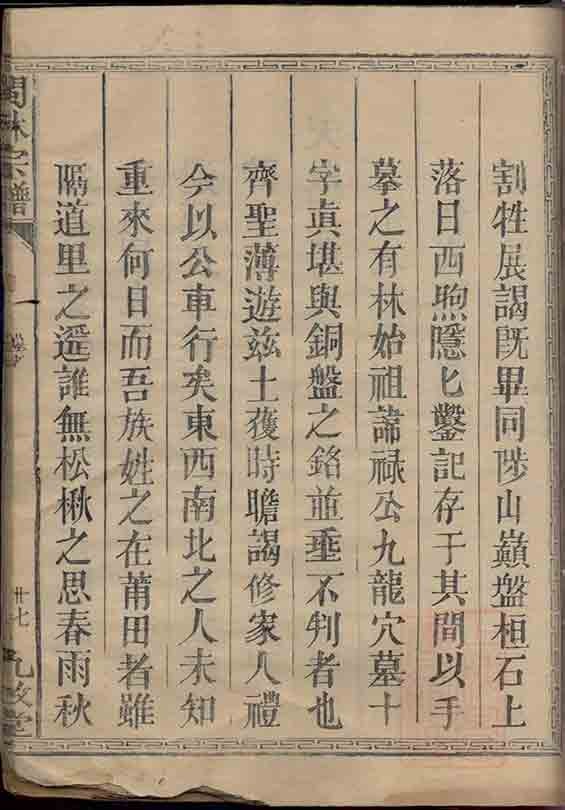 割牲展謁既畢同陟山巔盤桓石上
落日西煦隱匕鑿記存于其間以手
墓之有林始祖諱祿公九龍穴墓十
字真堪與銅盤之銘並垂不判者也
齊聖薄遊兹土獲時瞻謁修家人禮
今以公車行矣東西南北之人未知
重來何日而吾族姓之在莆田者雖
隔道里之遥誰無松楸之思春雨秋
林宗譜
廿七
九牧堂